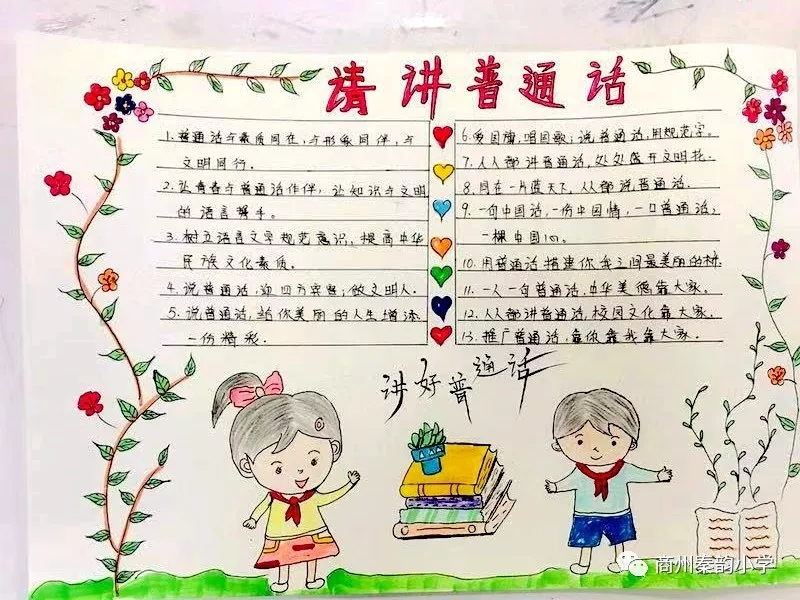 请讲普通话
1.普通话与素质同在,与形象同伴,与
文明同行.
2.让青春与普通话作伴;让知识与文明
的语言携手。
3.树立语言文字规范意识,提高中华
民族文化素质。
4.说普通话,迎四方宾客;做文明人.
5.说普通话,给你美丽的人生增添
一份精彩.
6.爱国旗,唱国歌;说普通话,用规范字。
7.人人都讲普通话,处处盛开文明花.
8.同在一片蓝天下,人人都说普通话.
9.一句中国话,一份中国情,一口普通话;
一棵中国心。
10.用普通话搭建你我之间最美丽的桥.
11.一人一句普通话,中华美德靠大家。
12.人人都讲普通话,校园文化靠大家.
13.推广普通话,靠你靠我靠大家.
讲好普通话
商州秦韵小学